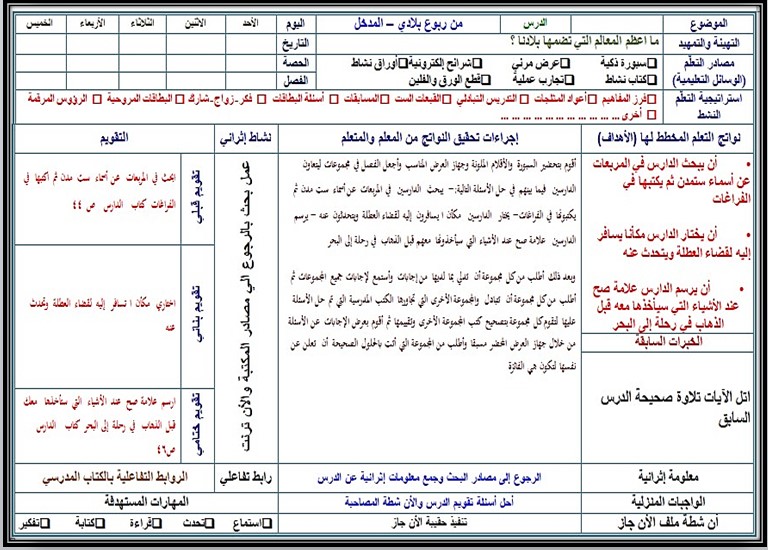 الموضوع
الدرس
من ربوع بلادي – المدخل
اليوم
الأحد
الأثنين
الثلاثاء
الأربعاء
الخميس
التهيئة والتمهيد
ما اعظم المعالم التي تضمها بلادنا ؟
التاريخ
مصادر التعلّم
(الوسائل التعليمية)
❑سبورة ذكية ❑عرض مرئي ❑شرائح إلكترونية❑أوراق نشاط
❑كتاب نشاط ❑تجارب عملية ❑قطع الورق والفلين
الحصة
الفصل
استراتيجية التعلّم
النشط
❑فرز المفاهيم ❑أعواد المثلجات ❑التدريس التبادلي ❑القبعات الست ❑المسابقات ❑ أسئلة البطاقات ❑ فكر-زواج-شارك ❑ البطاقات المروحية ❑ الرؤوس المرقمة
❑ أخرى ... ... ... ... ... ... ... ... ... ... ...
نواتج التعلم المخطط لها (الأهداف)
إجراءات تحقيق النواتج من المعلم والمتعلم
نشاط إثرائي
التقويم
• أن يبحث الدارس في المربعات
عن أسماء ستمدن ثم يكتبها في
الفراغات
• أن يختار الدارس مكأنا يسافر
إليه لقضاء العطلة ويتحدث عنه
• أن يرسم الدارس علامة صح
عند الأشياء التي سيأخذها معه قبل
الذهاب في رحلة إلى البحر
الخبرات السابقة
اتل الآيات تلاوة صحيحة الدرس
السابق
أقوم بتحضير السبورة والأقلام الملونة وجهاز العرض المناسب وأجعل الفصل في مجموعات ليتعاون
الدارسين فيما بينهم في حل الأسئلة التالية:– يبحث الدارسين في المربعات عن أسماء ست مدن ثم
يكتبوها في الفراغات– يختار الدارسين مكأن ا يسافرون إليه لقضاء العطلة ويتحدثون عنه – يرسم
الدارسين علامة صح عند الأشياء التي سيأخذونها معهم قبل الذهاب في رحلة إلى البحر
وبعد ذلك أطلب من كل مجموعة أن تدلي بما لديها من إجابات وأستمع لإجابات جميع المجموعات ثم
أطلب من كل مجموعة أن تبادل والمجموعة الأخرى التي تجاورها الكتب المدرسية التي تم حل الأسئلة
عليها لتقوم كل مجموعة بتصحيح كتب المجموعة الأخرى وتقييمها ثم أقوم بعرض الإجابات عن الأسئلة
من خلال جهاز العرض المحضر مسبقا وأطلب من المجموعة التي أتت بالحلول الصحيحة أن تعلن عن
نفسها لتكون هي الفائزة
عمل بحث بالرجوع الي مصادر المكتبية والأن ترنت
تقويم قبلي
ابحث في المربعات عن أسماء ست مدن ثم اكتبها في
الفراغات كتاب الدارس ص ٤٤
تقويم بنائي
اختاري مكأن ا تسافر إليه لقضاء العطلة وتحدث
عنه
تقويم ختامي
ارسم علامة صح عند الأشياء التي ستأخذها معك
قبل الذهاب في رحلة إلى البحر كتاب الدارس
ص٤٦
معلومة إثرائية
الرجوع إلى مصادر البحث وجمع معلومات إثرائية عن الدرس
رابط تفاعلي
الروابط التفاعلية بالكتاب المدرسي
الواجبات المنزلية
أحل أسئلة تقويم الدرس والأن شطة المصاحبة
المهارات المستهدفة
أن شطة ملف الأن جاز
تنفيذ حقيبة الأن جاز
❑استماع ❑تحدث ❑قراءة ❑كتابة ❑تفكير